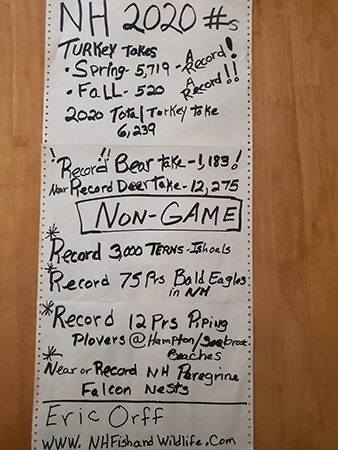 NH 2020 #s
TURKEY TAKES
• Spring- 5,719 - A Record!
• FALL- 520 A Record!!
2020 Total Turkey take
6,239
! Record!! Bear take -1,183!
Near Record Deer Take -12,275
NON-GAME
* Record 3,000 TERNS-Ishoals
* Record 75 Prs Bald Eagles
in NH
* Record 12 Prs Piping
Plovers @ Hampton/Seabrook
Beaches
* Near or Record NH Peregrine
Falcon Nests
Eric Orff
WWW.NHFishandWildlife.Com